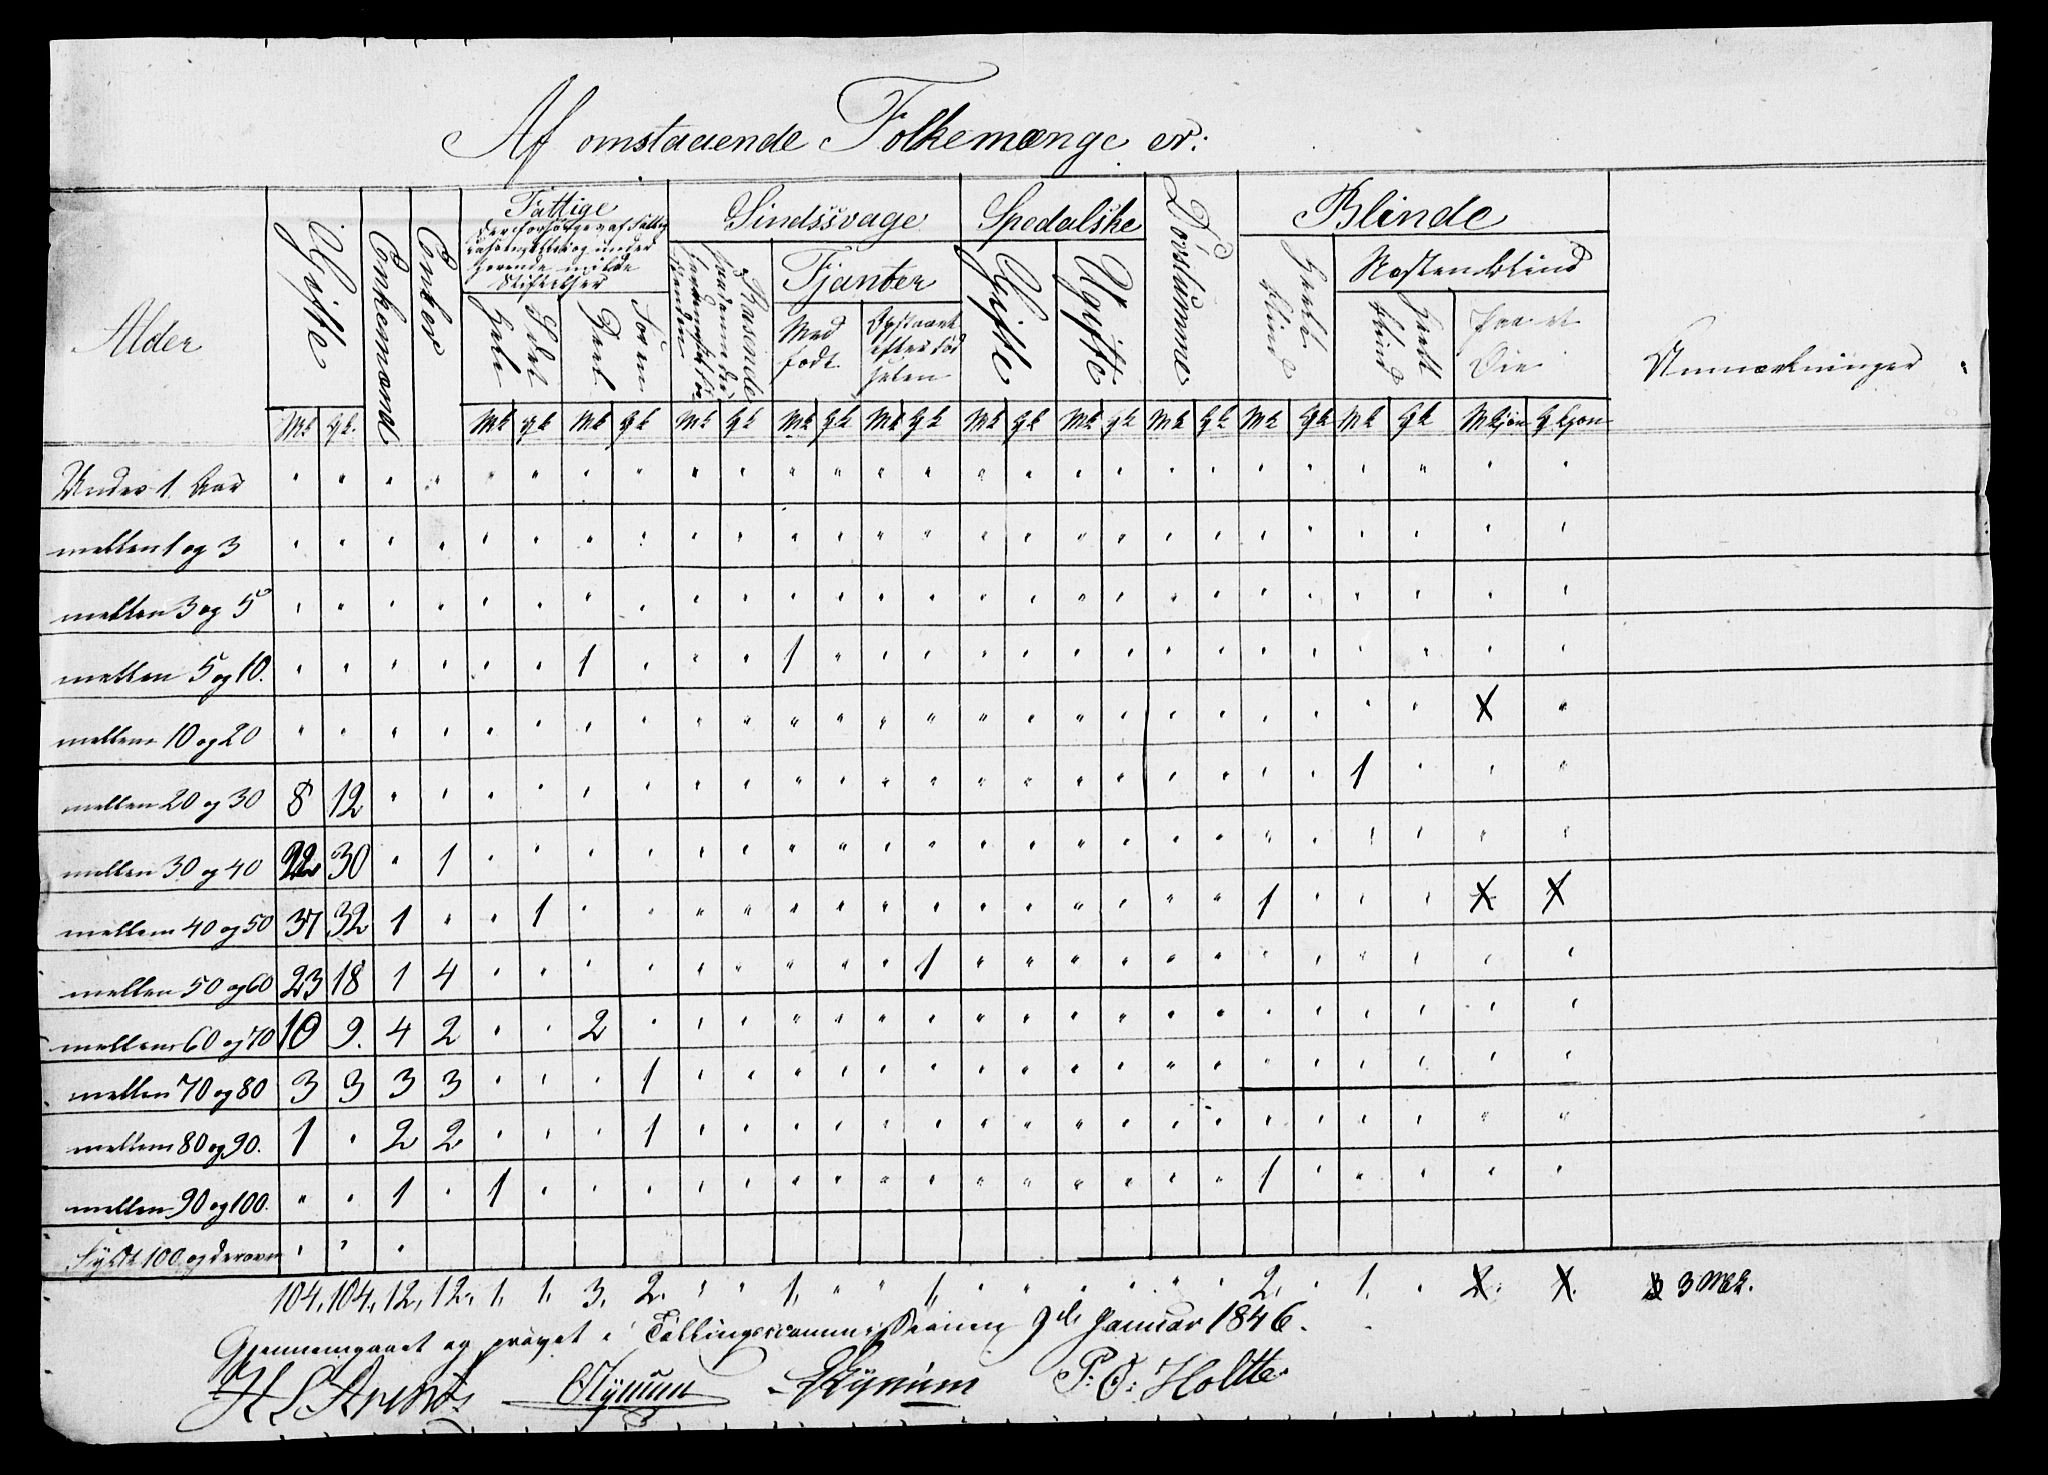 Af omstaaende Folkemænge er:
Alder
Gifte
Enkemænd
Enker
Fattige
Sindssvage
Spedalske
Døvstumme
Blinde
Anmærkninger
Hele
Deel
Tjanter
Med
født
Opstaaet
efter Fød
selen
Gifte
Ugifte
Næsten blind
paa et
Øie
Mk Qk. Mk Qk Mk Qk Mk Qk Mk Qk Mk Qk Mk Qk Mk Qk Mk Qk Mk Qk Mk Qk Mkjøn Qkjøn
Under 1 Aar
mellem 1 og 3
mellem 3 og 5
mellem 5 og 10. 1 1
mellem 10 og 20 X
mellem 20 og 30 8 12 1
mellem 30 og 40 22 30 1
mellem 40 og 50 37 32 1 1 1 X X
mellem 50 og 60 23 18 1 4 1
mellem 60 og 70 10 9. 4 2 2
mellem 70 og 80 3 3 3 3 1
mellem 80 og 90. 1 2 2 1
mellem 90 og 100. 1 1 1
Fyldt 100 og derover
104, 104, 12, 12, 1, 1, 3, 2, 1, 1, 2, 1, 3 Mk.
Gjennemgaaet og prøvet i Tællingscommissionen 9de Januar 1846.
H L Arentz P: O: Holtte